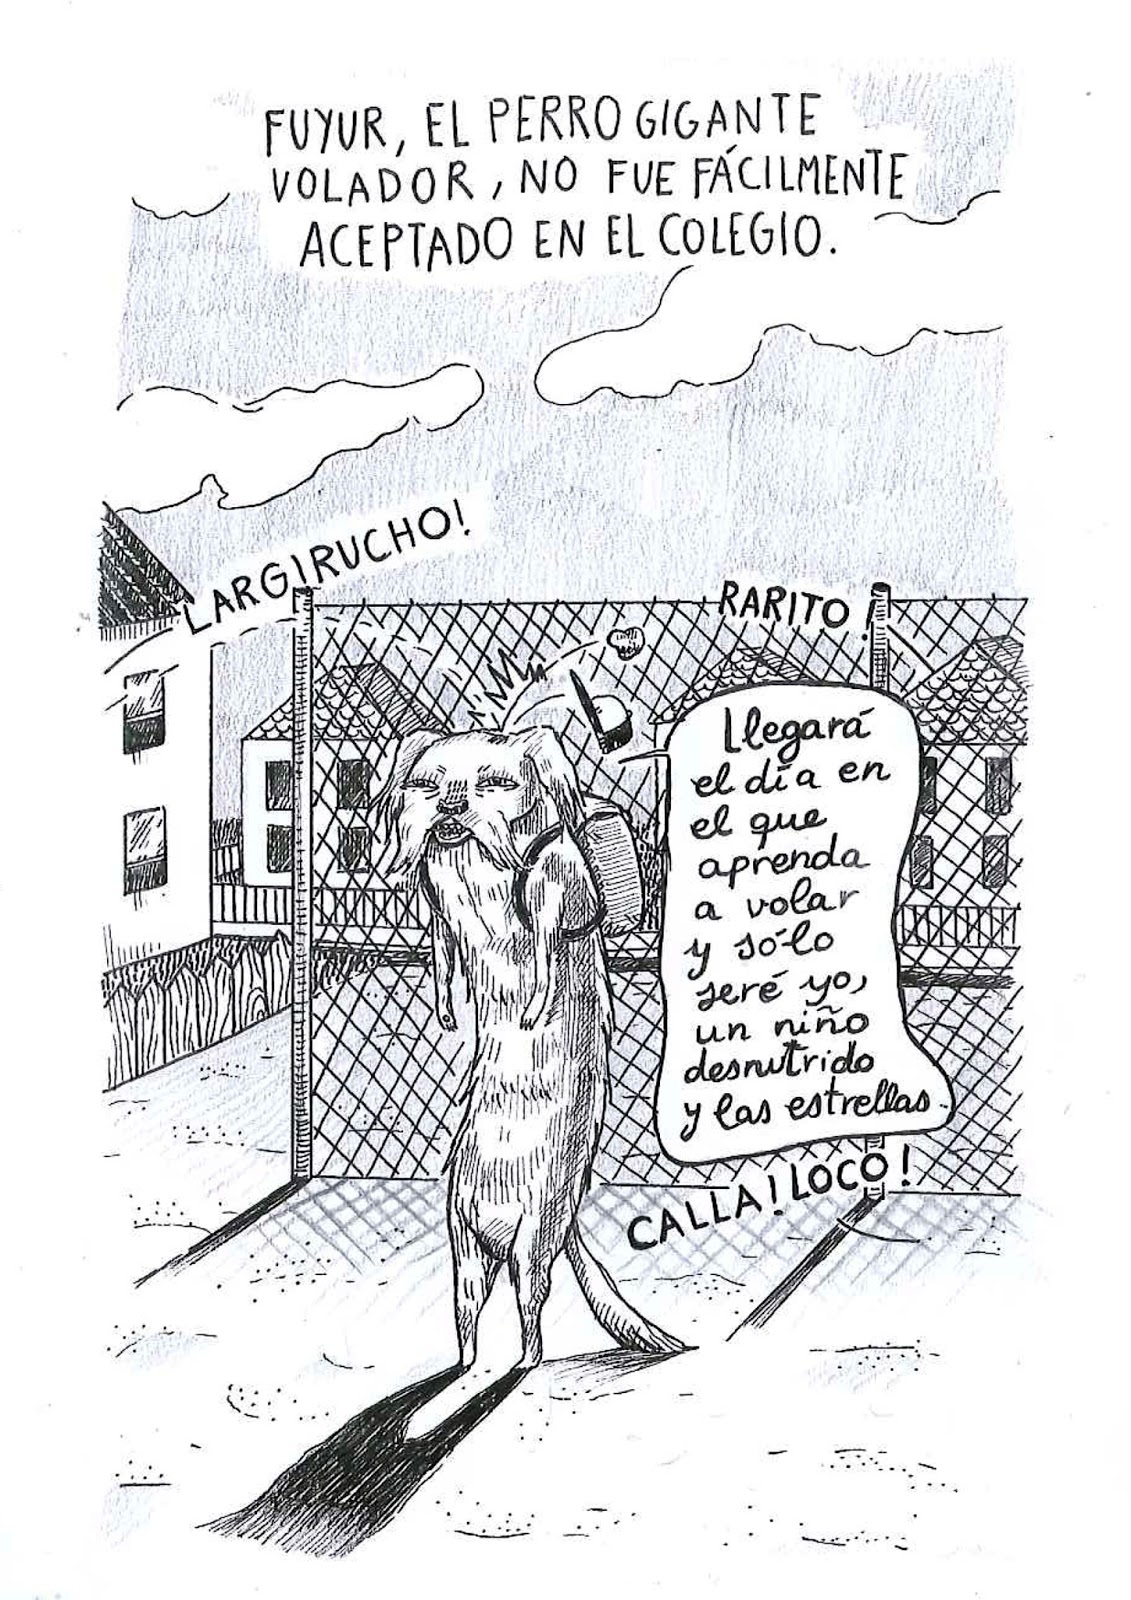 FUYUR, EL PERRO GIGANTE
VOLADOR, NO FUE FÁCILMENTE
ACEPTADO EN EL COLEGIO.
LARGIRUCHO!
RARITO!
Llegará
el día en
el que
aprenda
a volar
y sólo
seré yo,
un niño
desnutrido
y las estrellas.
CALLA! LOCO!